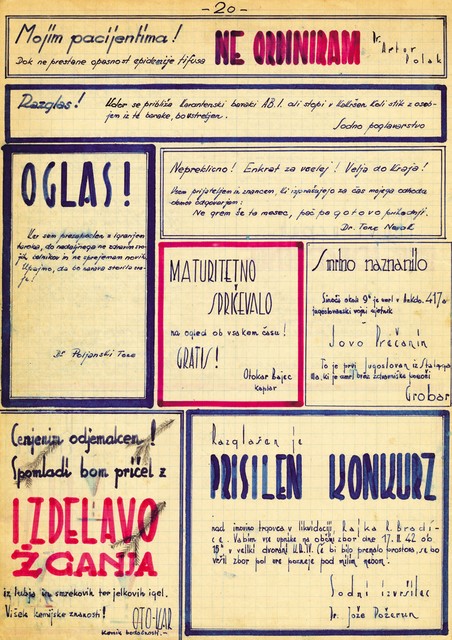 - 20 -
Mojim pacijentima!
Dok ne prestane opasnost epidemije tifusa
NE ORDINIRAM
Dr. Artur
Polak
Razglas!
Kdor se približa Karantenski baraki AB.1. ali stopi v kakršen koli stik z oseb-
jem iz te barake, bo ustreljen.
Sodno poglavarstvo
OGLAS!
Ker sem prezaposlen z igranjem
bolnikov in ne sprejemam novih.
Upajmo, da bo
Dr. Poljanski Tone
Nepreklicno! Enkrat za vselej! Velja do kraja!
Vsem prijateljem in znancem, ki izprašujejo za čas mojega odhoda
odgovarjam:
Ne grem še ta mesec, pač pa gotovo prihodnji.
Dr. Tone Novak
MATURITETNO
SPRIČEVALO
na ogled ob vsakem času!
GRATIS!
Otokar Bajec
kaplar
Smrtno naznanilo
Sinoči okoli 9h je umrl v
jugoslovanski vojni ujetnik
Jovo Prečanin
To je prvi Jugoslovan iz Stalaga
ki je umrl brez zdravniške pomoči
Grobar
Cenjenim odjemalcem!
Spomladi bom pričel z
IZDELAVO
ŽGANJA
iz lubja in smrekovih ter jelkovih igel.
Višek kemijske znanosti!
OTO-KAR
Kemik bodočnosti.-
Razglašen je
PRISILEN KONKURZ
nad imovino trgovca v likvidaciji Rajka R. Bradi-
ce. Vabim vse upnike na občni zbor dne 17. II. 42 ob
18h v veliki dvorani Če bi bilo premalo prostora, se bo
vršil zbor pol ure pozneje pod milim nebom.
Sodni izvršilec
Dr. Jože Požerun